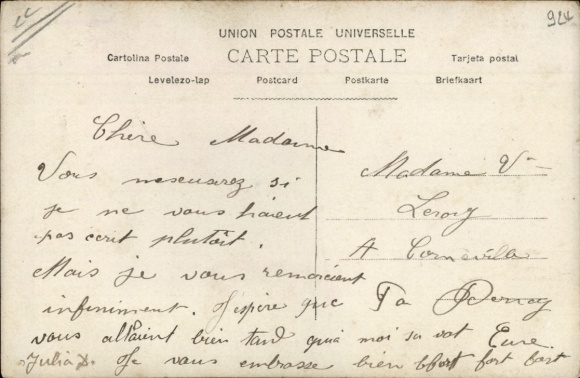 924
UNION POSTALE UNIVERSELLE
Cartolina Postale CARTE POSTALE Tarjeta postal
Levelezo-lap Postcard Postkarte Briefkaart
Chère Madame
Vous si
je ne vous
pas écrit plutôt.
Mais je vous
infiniment. J'espère que
vous bien tard moi sa vat
Julia D. Je vous embrasse bien fort fort
Madame Vᵉ
Leroy
A Corneville
Eure.